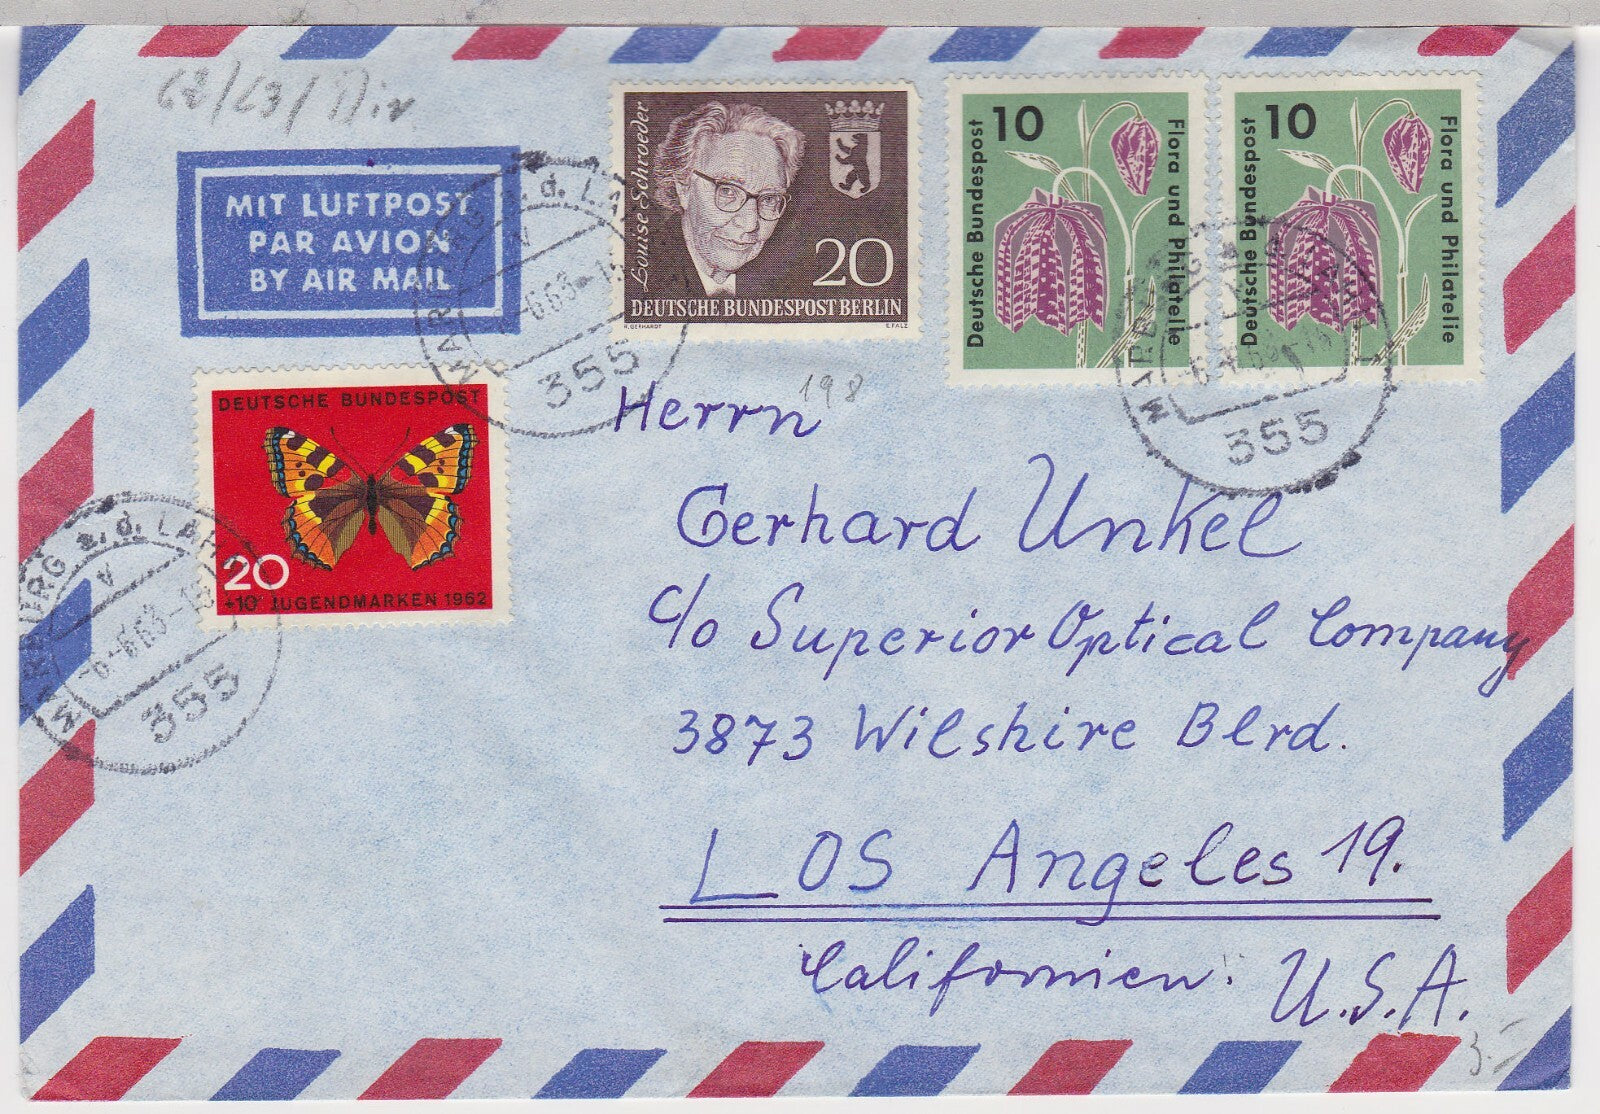 62/63/Div
MIT LUFTPOST
PAR AVION
BY AIR MAIL
Louise Schroeder
20
DEUTSCHE BUNDESPOST BERLIN
R. GERHARDT
E. FALZ
10
Deutsche Bundespost
Flora und Philatelie
10
Deutsche Bundespost
Flora und Philatelie
MARBURG a. d. LAHN
V
-6.6.63-
355
MARBURG
355
DEUTSCHE BUNDESPOST
20
+10 JUGENDMARKEN 1962
MARBURG a. d. LAHN
V
-6.6.63-
355
198
Herrn
Gerhard Unkel
c/o Superior Optical Company
3873 Wilshire Blrd.
LOS Angeles 19.
Californien. U.S.A.
3.-